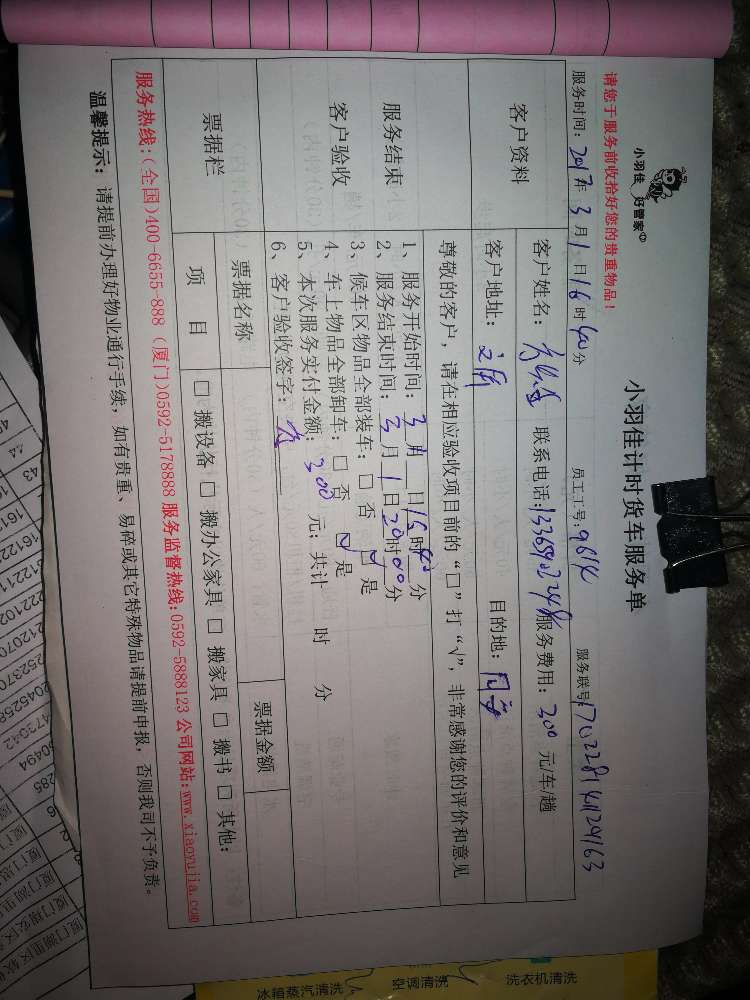 小羽佳 好管家
小羽佳计时货车服务单
请您于服务前收拾好您的贵重物品!
服务时间: 2017年 3月 1日 16时 40分 员工工号: 9614 服务联号
客户资料
客户姓名: 联系电话: 服务费用: 300 元/车/趟
客户地址: 目的地: 同安
服务结束
客户验收
尊敬的客户,请在相应验收项目前的“□”打“√”,非常感谢您的评价和意见
1、服务开始时间: 3月 日 时 分
2、服务结束时间: 3月 1日 20时 00分
3、候车区物品全部装车: □ 否 ☑ 是
4、车上物品全部卸车: □ 否 ☑ 是
5、本次服务实付金额: 300 元; 共计 时 分
6、客户验收签字:
票据栏
票据名称 票据金额
项 目 □ 搬设备 □ 搬办公家具 □ 搬家具 □ 搬书 □ 其他:
服务热线:(全国)400-6655-888 (厦门)0592-5178888 服务监督热线:0592-5888123 公司网站:www.xiaoyujia.com
温馨提示: 请提前办理好物业通行手续,如有贵重、易碎或其它特殊物品请提前申报,否则我司不予负责。
洗衣机清洗
空调清洗
冰箱蒸汽清洗